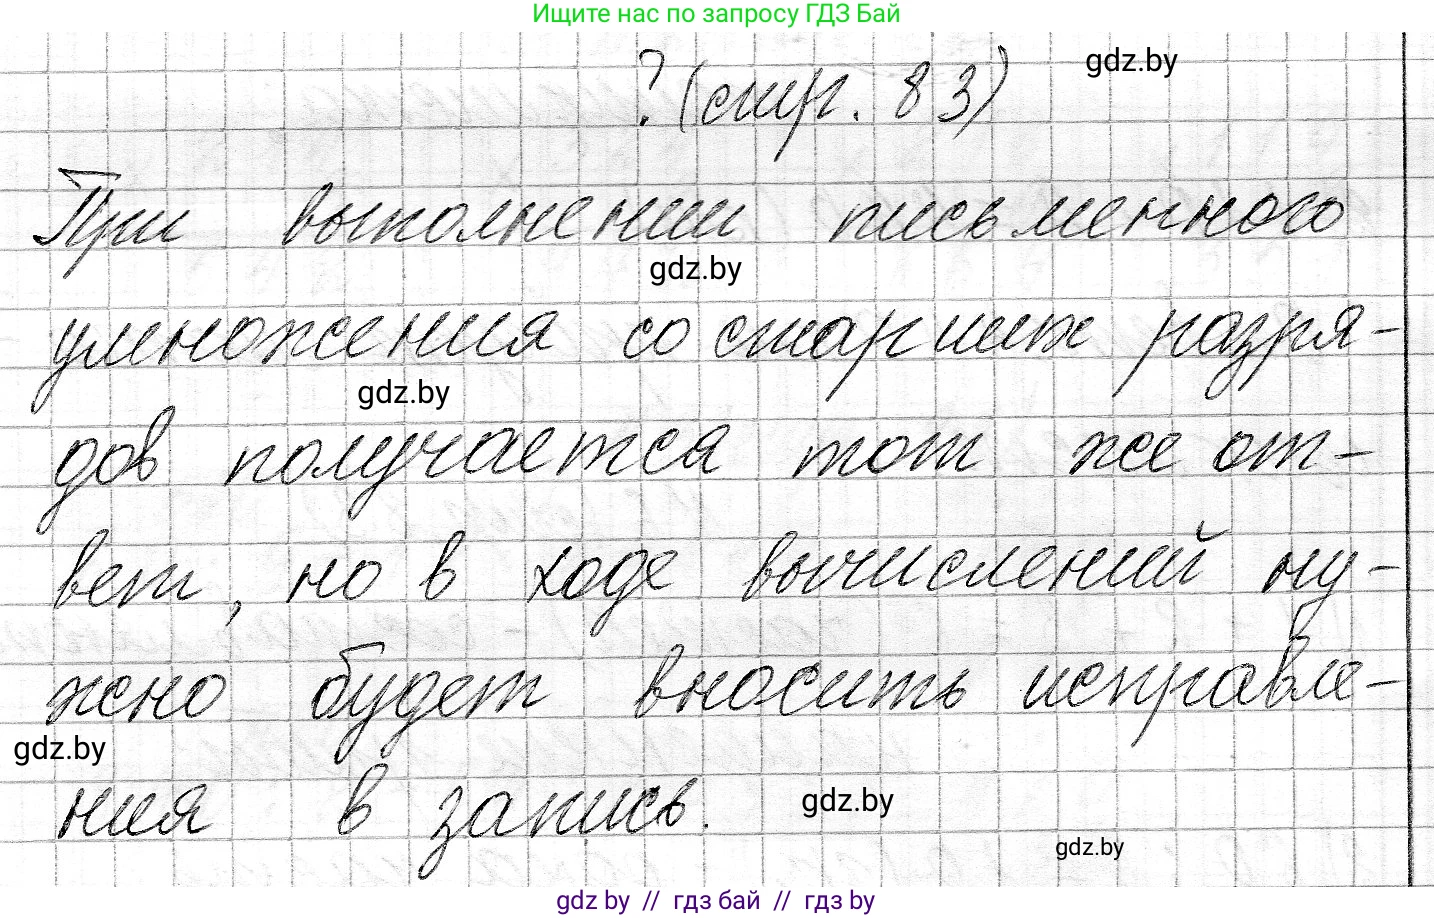 Ищите нас по запросу ГДЗ Бай
? (стр. 83)
gdz.by
При выполнении письменного
gdz.by
умножения со старших разря-
gdz.by
дов получается тот же от-
вет, но в ходе вычислений ну-
жно будет вносить исправле-
gdz.by
ния в запись.
gdz.by
gdz.by
gdz by // гдз бай // гдз by